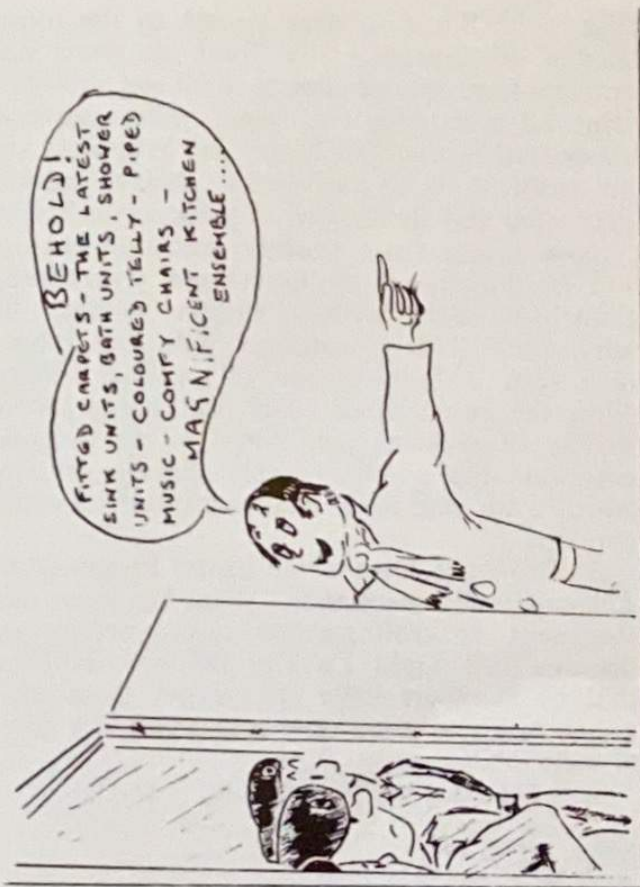 BEHOLD!
FITTED CARPETS - THE LATEST
SINK UNITS, BATH UNITS, SHOWER
UNITS - COLOURED TELLY - PIPED
MUSIC - COMFY CHAIRS -
MAGNIFICENT KITCHEN
ENSEMBLE....